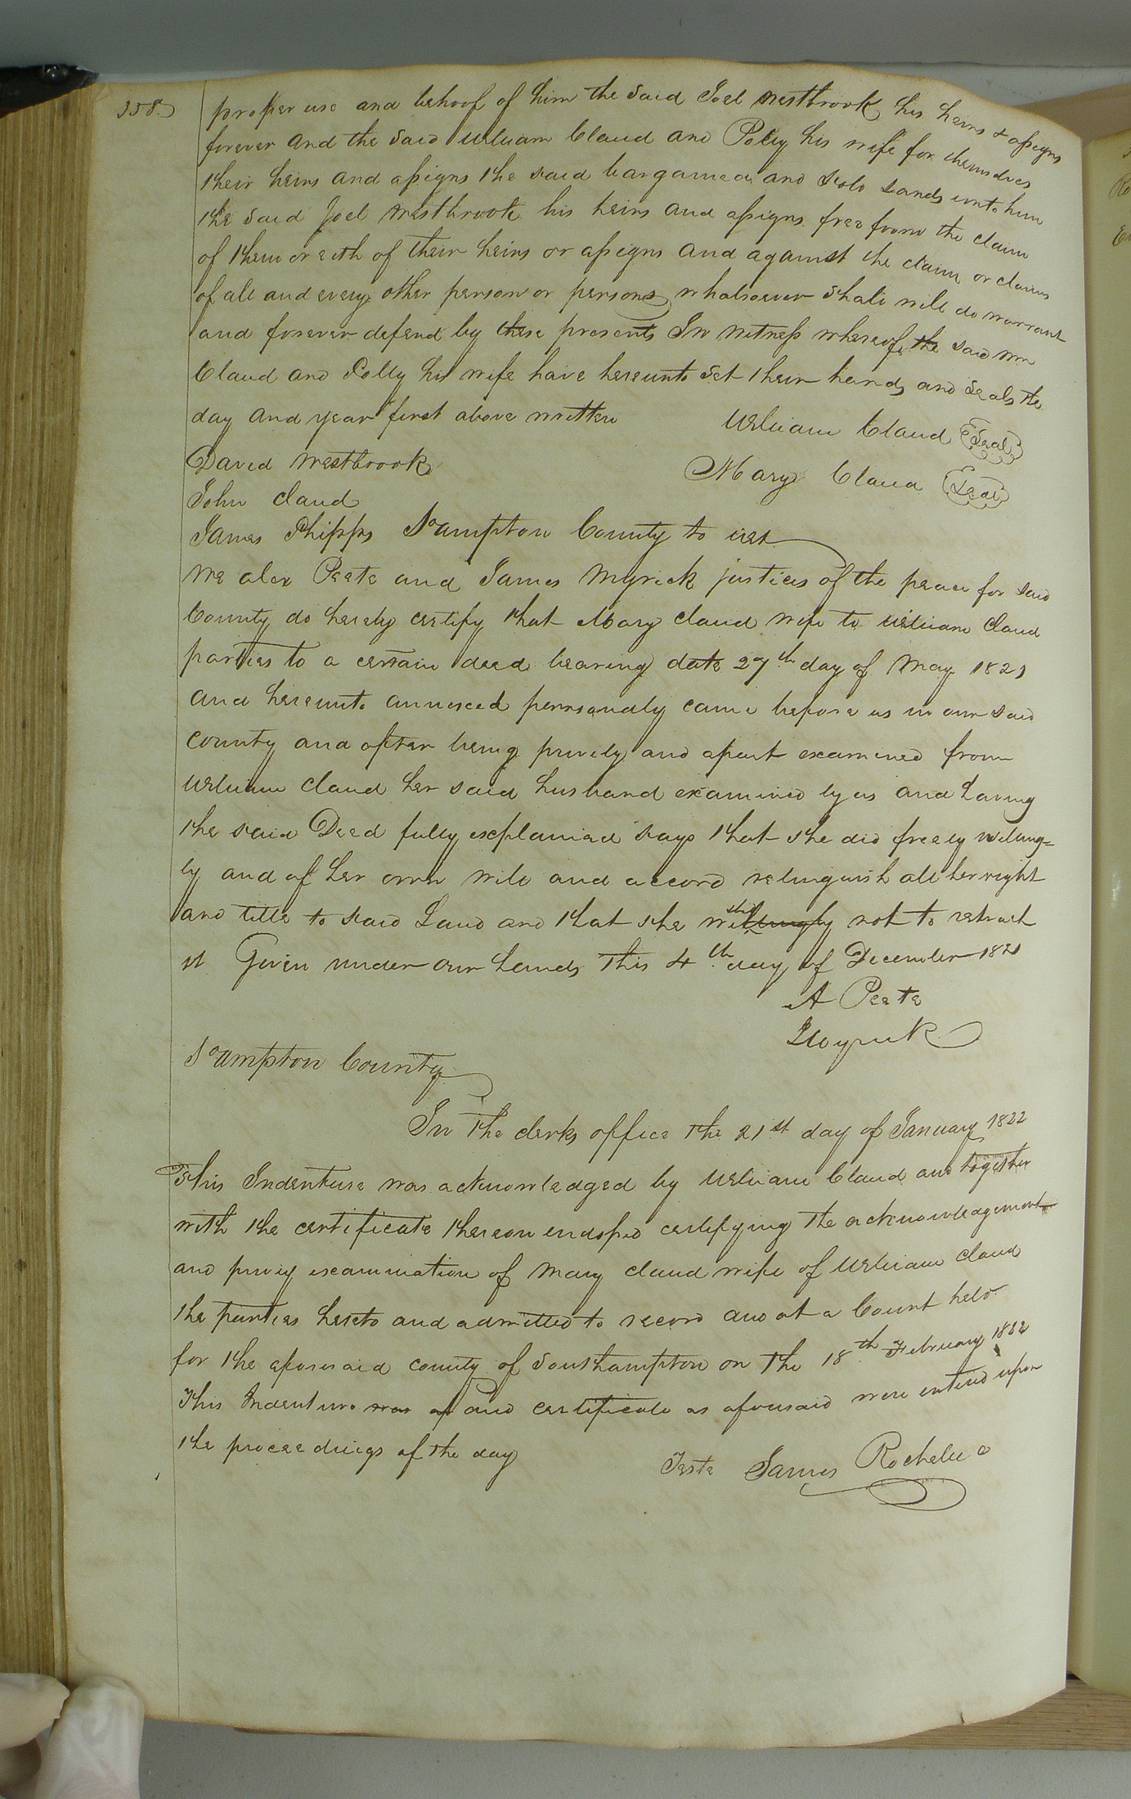 358
proper use and behoof of him the said Joel Westbrook his heirs & assigns
forever and the said William Claud and Polly his wife for themselves
their heirs and assigns the said bargained and sold Lands unto him
the said Joel Westbrook his heirs and assigns free from the claim
of them or eith of their heirs or assigns and against the claim or claims
of all and every other person or persons whatsoever shall will do warrant
and forever defend by these presents In Witness whereof the said Wm
Claud and Polly his wife have hereunto set their hands and seals the
day and year first above written William Claud Seal
David Westbrook Mary Claud Seal
John Claud
James Phipps So ampton County to wit
We alex Peete and James Myrick justices of the peace for said
County do hereby certify that Mary Claud wife to William Claud
parties to a certain deed bearing date 27th day of May 1821
and hereunto annexed personally came before us in our said
County and after being privily and apart examined from
William Claud her said husband examined by us and having
the said Deed fully explained says that she did freely willing=
ly and of her own will and accord relinquish all her right
and title to said Land and that she wish not to retract
it Given under our hands this 4th day of December 1821
A Peete
J Myrick
So ampton County
In the clerks office the 21st day of January 1822
This Indenture was acknowledged by William Claud and together
with the certificate thereon endorsed certifying the acknowledgement
and privy examination of Mary Claud wife of William Claud
the parties hereto and admitted to record and at a Court held
for the aforesaid county of Southampton on the 18th February 1822
This Indenture was and certificate as aforesaid were entered upon
the proceedings of the day
Teste James Rochelle